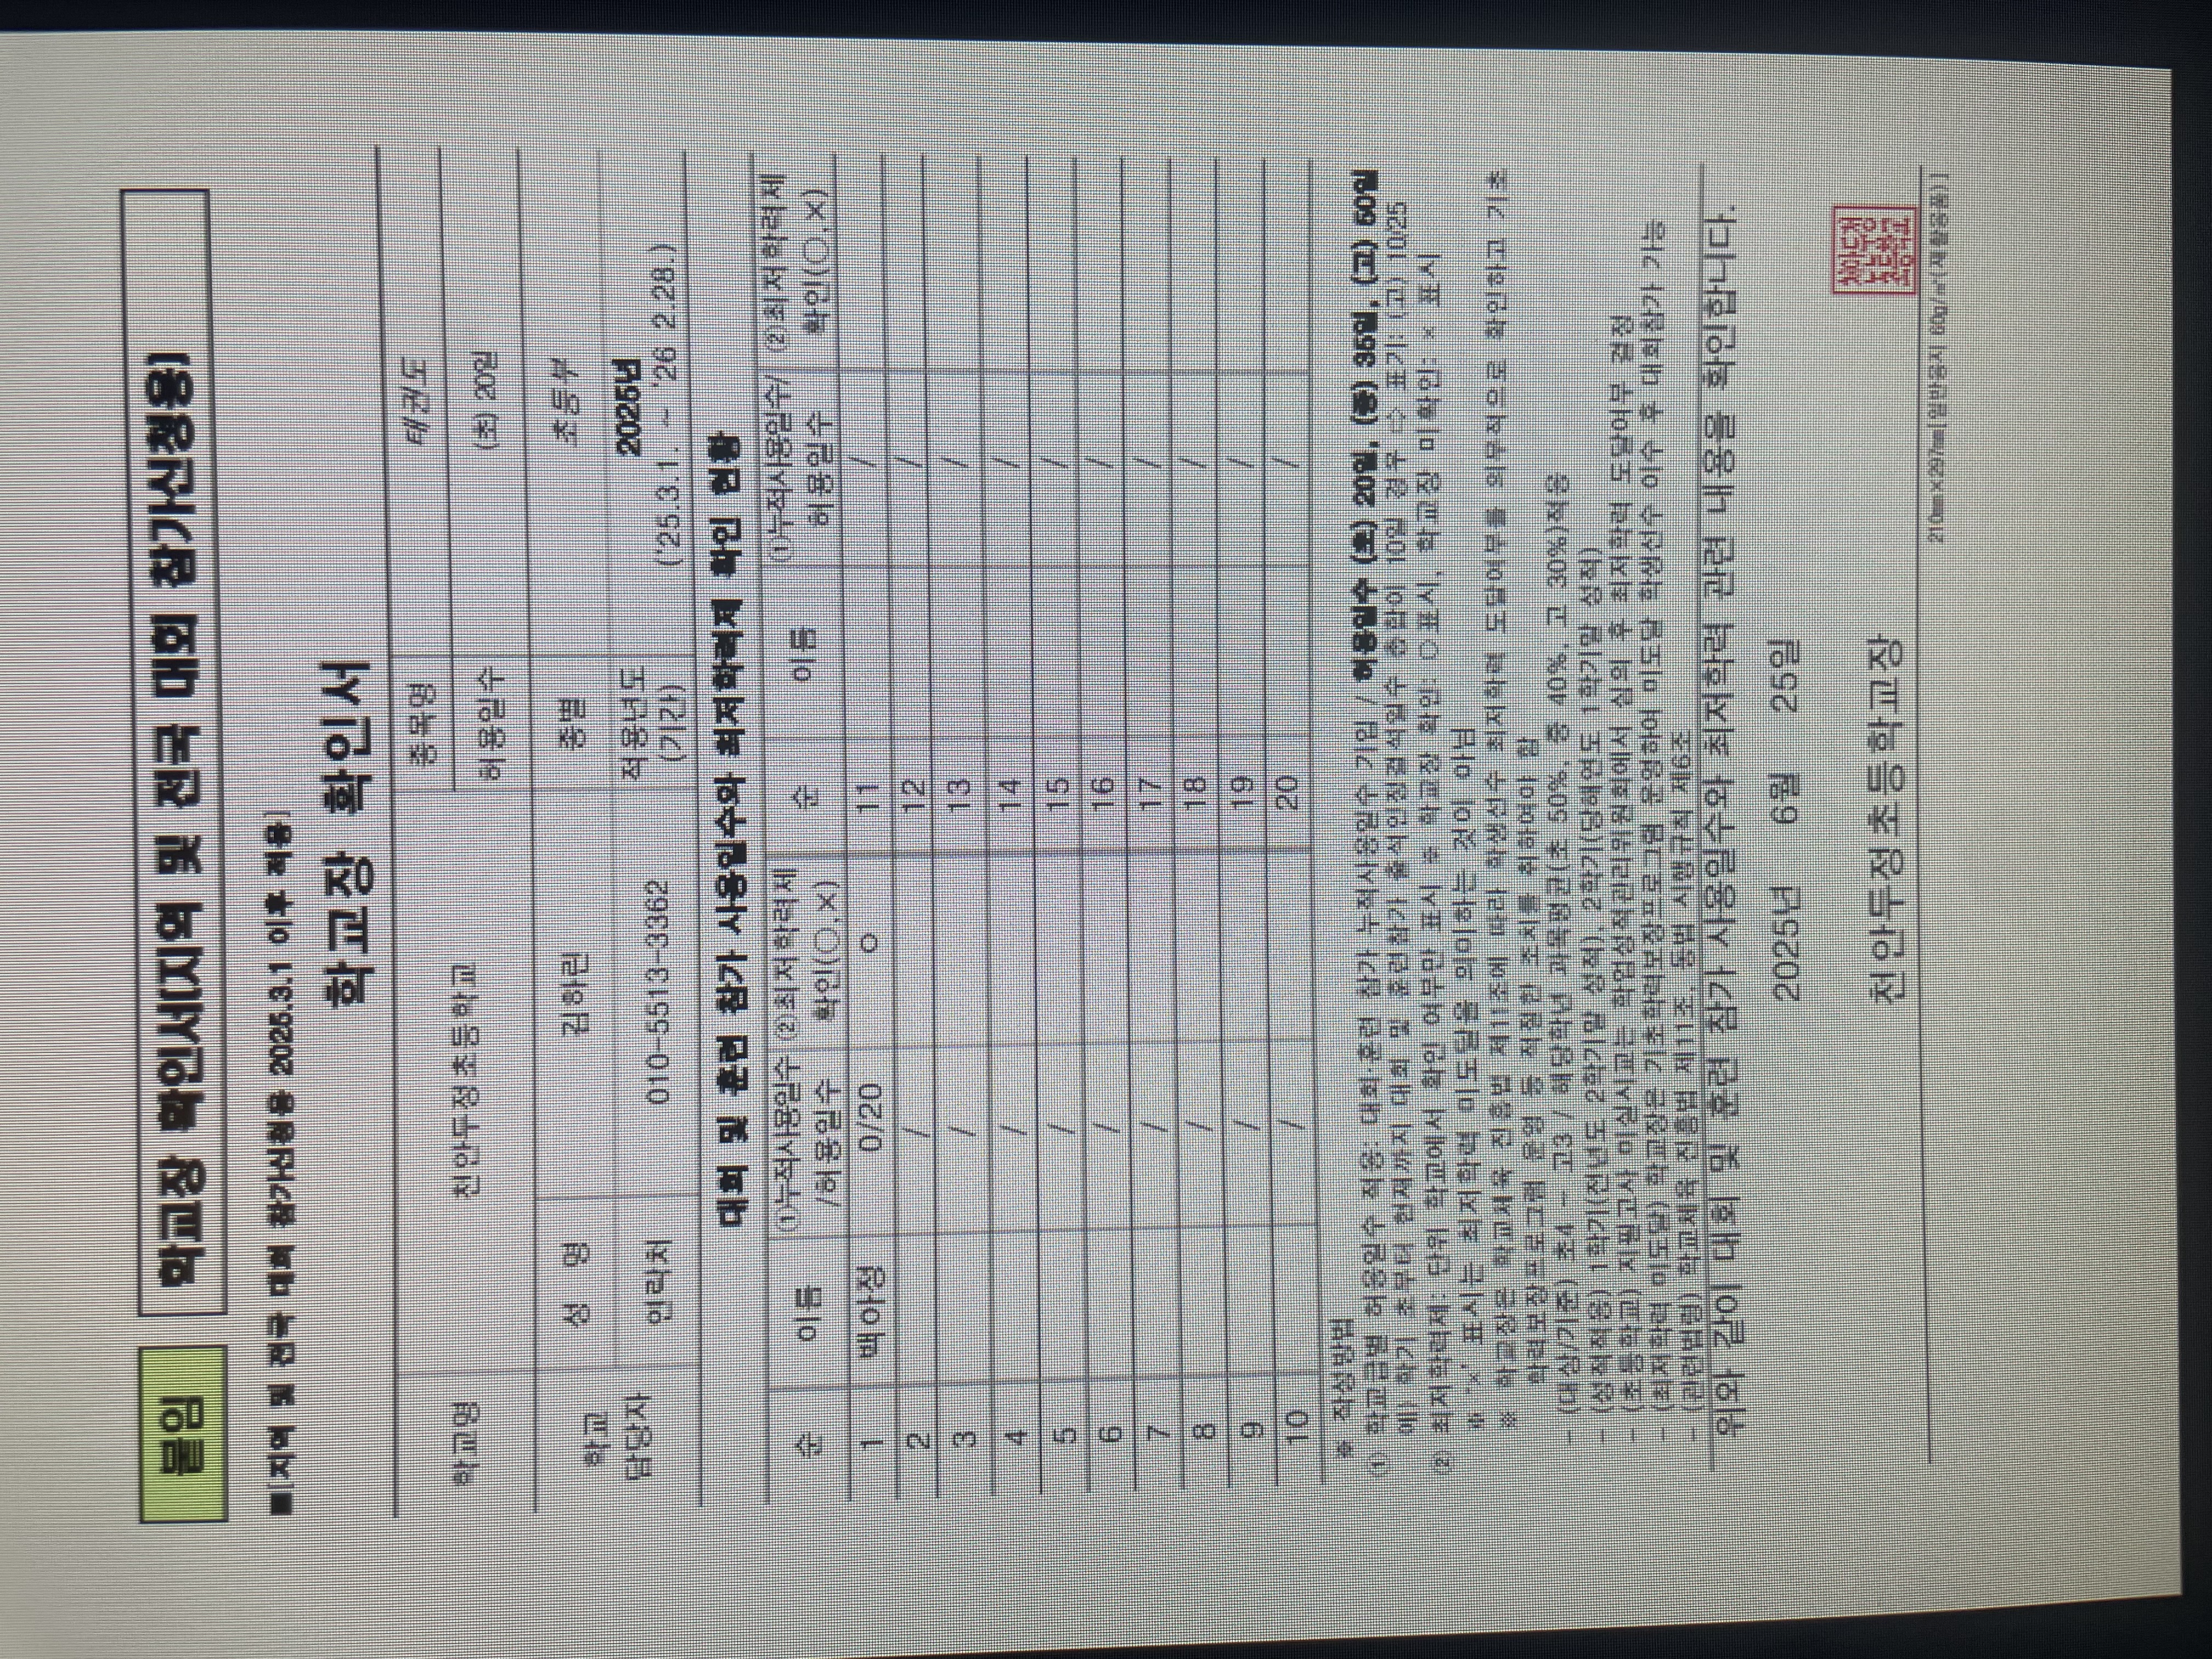 붙임
학교장 확인서(지역 및 전국 대회 참가신청용)
■[지역 및 전국 대회 참가신청용 2025.3.1 이후 적용]
학교장 확인서
학교명 천안두정초등학교 종목명 태권도
허용일수 (초) 20일
학교 담당자 성 명 김하린 종별 초등부
연락처 010-5513-3362 적용년도 (기간) 2025년 ('25.3.1. ~ '26 2.28.)
대회 및 훈련 참가 사용일수와 최저학력제 확인 현황
순 이름 ①누적사용일수 /허용일수 ②최저학력제 확인(○,×) 순 이름 ①누적사용일수/ 허용일수 ②최저학력제 확인(○,×)
1 백아정 0/20 ○ 11 /
2 / 12 /
3 / 13 /
4 / 14 /
5 / 15 /
6 / 16 /
7 / 17 /
8 / 18 /
9 / 19 /
10 / 20 /
※ 작성방법
① 학교급별 허용일수 적용: 대회·훈련 참가 누적사용일수 기입 / 허용일수 (초) 20일, (중) 35일, (고) 50일
예) 학기 초부터 현재까지 대회 및 훈련참가 출석인정결석일수 총합이 10일 경우 ⇨ 표기: (고) 10/25
② 최저학력제: 단위 학교에서 확인 여부만 표시 ※ 학교장 확인: ○표시, 학교장 미확인: × 표시
※ '×' 표시는 최저학력 미도달을 의미하는 것이 아님
※ 학교장은 학교체육 진흥법 제11조에 따라 학생선수 최저학력 도달여부를 의무적으로 확인하고 기초
학력보장프로그램 운영 등 적절한 조치를 취하여야 함
- (대상/기준) 초4 ~ 고3 / 해당학년 과목평균(초 50%, 중 40%, 고 30%)적용
- (성적적용) 1학기(전년도 2학기말 성적), 2학기(당해연도 1학기말 성적)
- (초등학교) 지필고사 미실시교는 학업성적관리위원회에서 심의 후 최저학력 도달여부 결정
- (최저학력 미도달) 학교장은 기초학력보장프로그램 운영하여 미도달 학생선수 이수 후 대회참가 가능
- (관련법령) 학교체육 진흥법 제11조, 동법 시행규칙 제6조
위와 같이 대회 및 훈련 참가 사용일수와 최저학력 관련 내용을 확인합니다.
2025년 6월 25일
천안두정초등학교장
210㎜×297㎜[일반용지 60g/㎡(재활용품)]